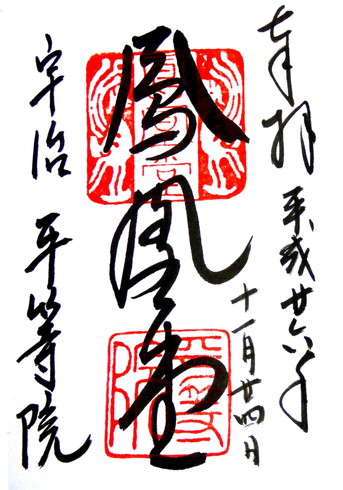 奉拝
平成廿六年
十一月廿四日
鳳凰堂
宇治 平等院